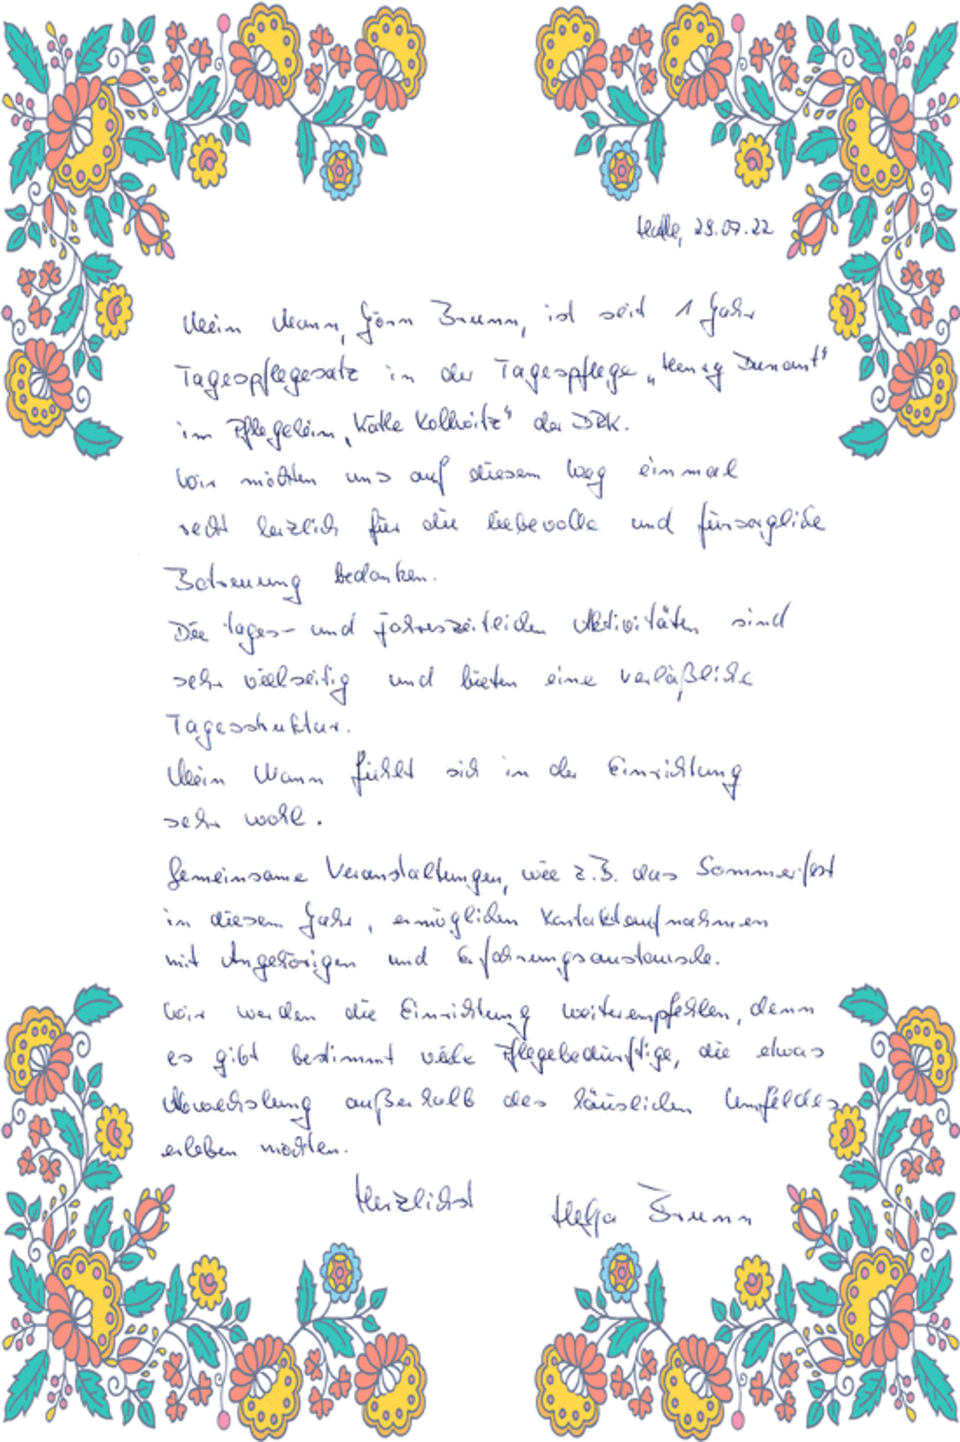 Halle, 29.07.22
Mein Mann, Jörn Brunn, ist seit 1 Jahr
Tagespflegesatz in der Tagespflege „Henry Dunant"
im Pflegeheim „Käthe Kollwitz" des DRK.
Wir möchten uns auf diesem Weg einmal
recht herzlich für die liebevolle und fürsorgliche
Betreuung bedanken.
Die tages- und jahreszeitlichen Aktivitäten sind
sehr vielseitig und bieten eine verläßliche
Tagesstruktur.
Mein Mann fühlt sich in der Einrichtung
sehr wohl.
Gemeinsame Veranstaltungen, wie z.B. das Sommerfest
in diesem Jahr, ermöglichen Kontaktaufnahmen
mit Angehörigen und Erfahrungsaustausche.
Wir werden die Einrichtung weiterempfehlen, denn
es gibt bestimmt viele Pflegebedürftige, die etwas
Abwechslung außerhalb des häuslichen Umfeldes
erleben möchten.
Herzlichst Helga Brunn